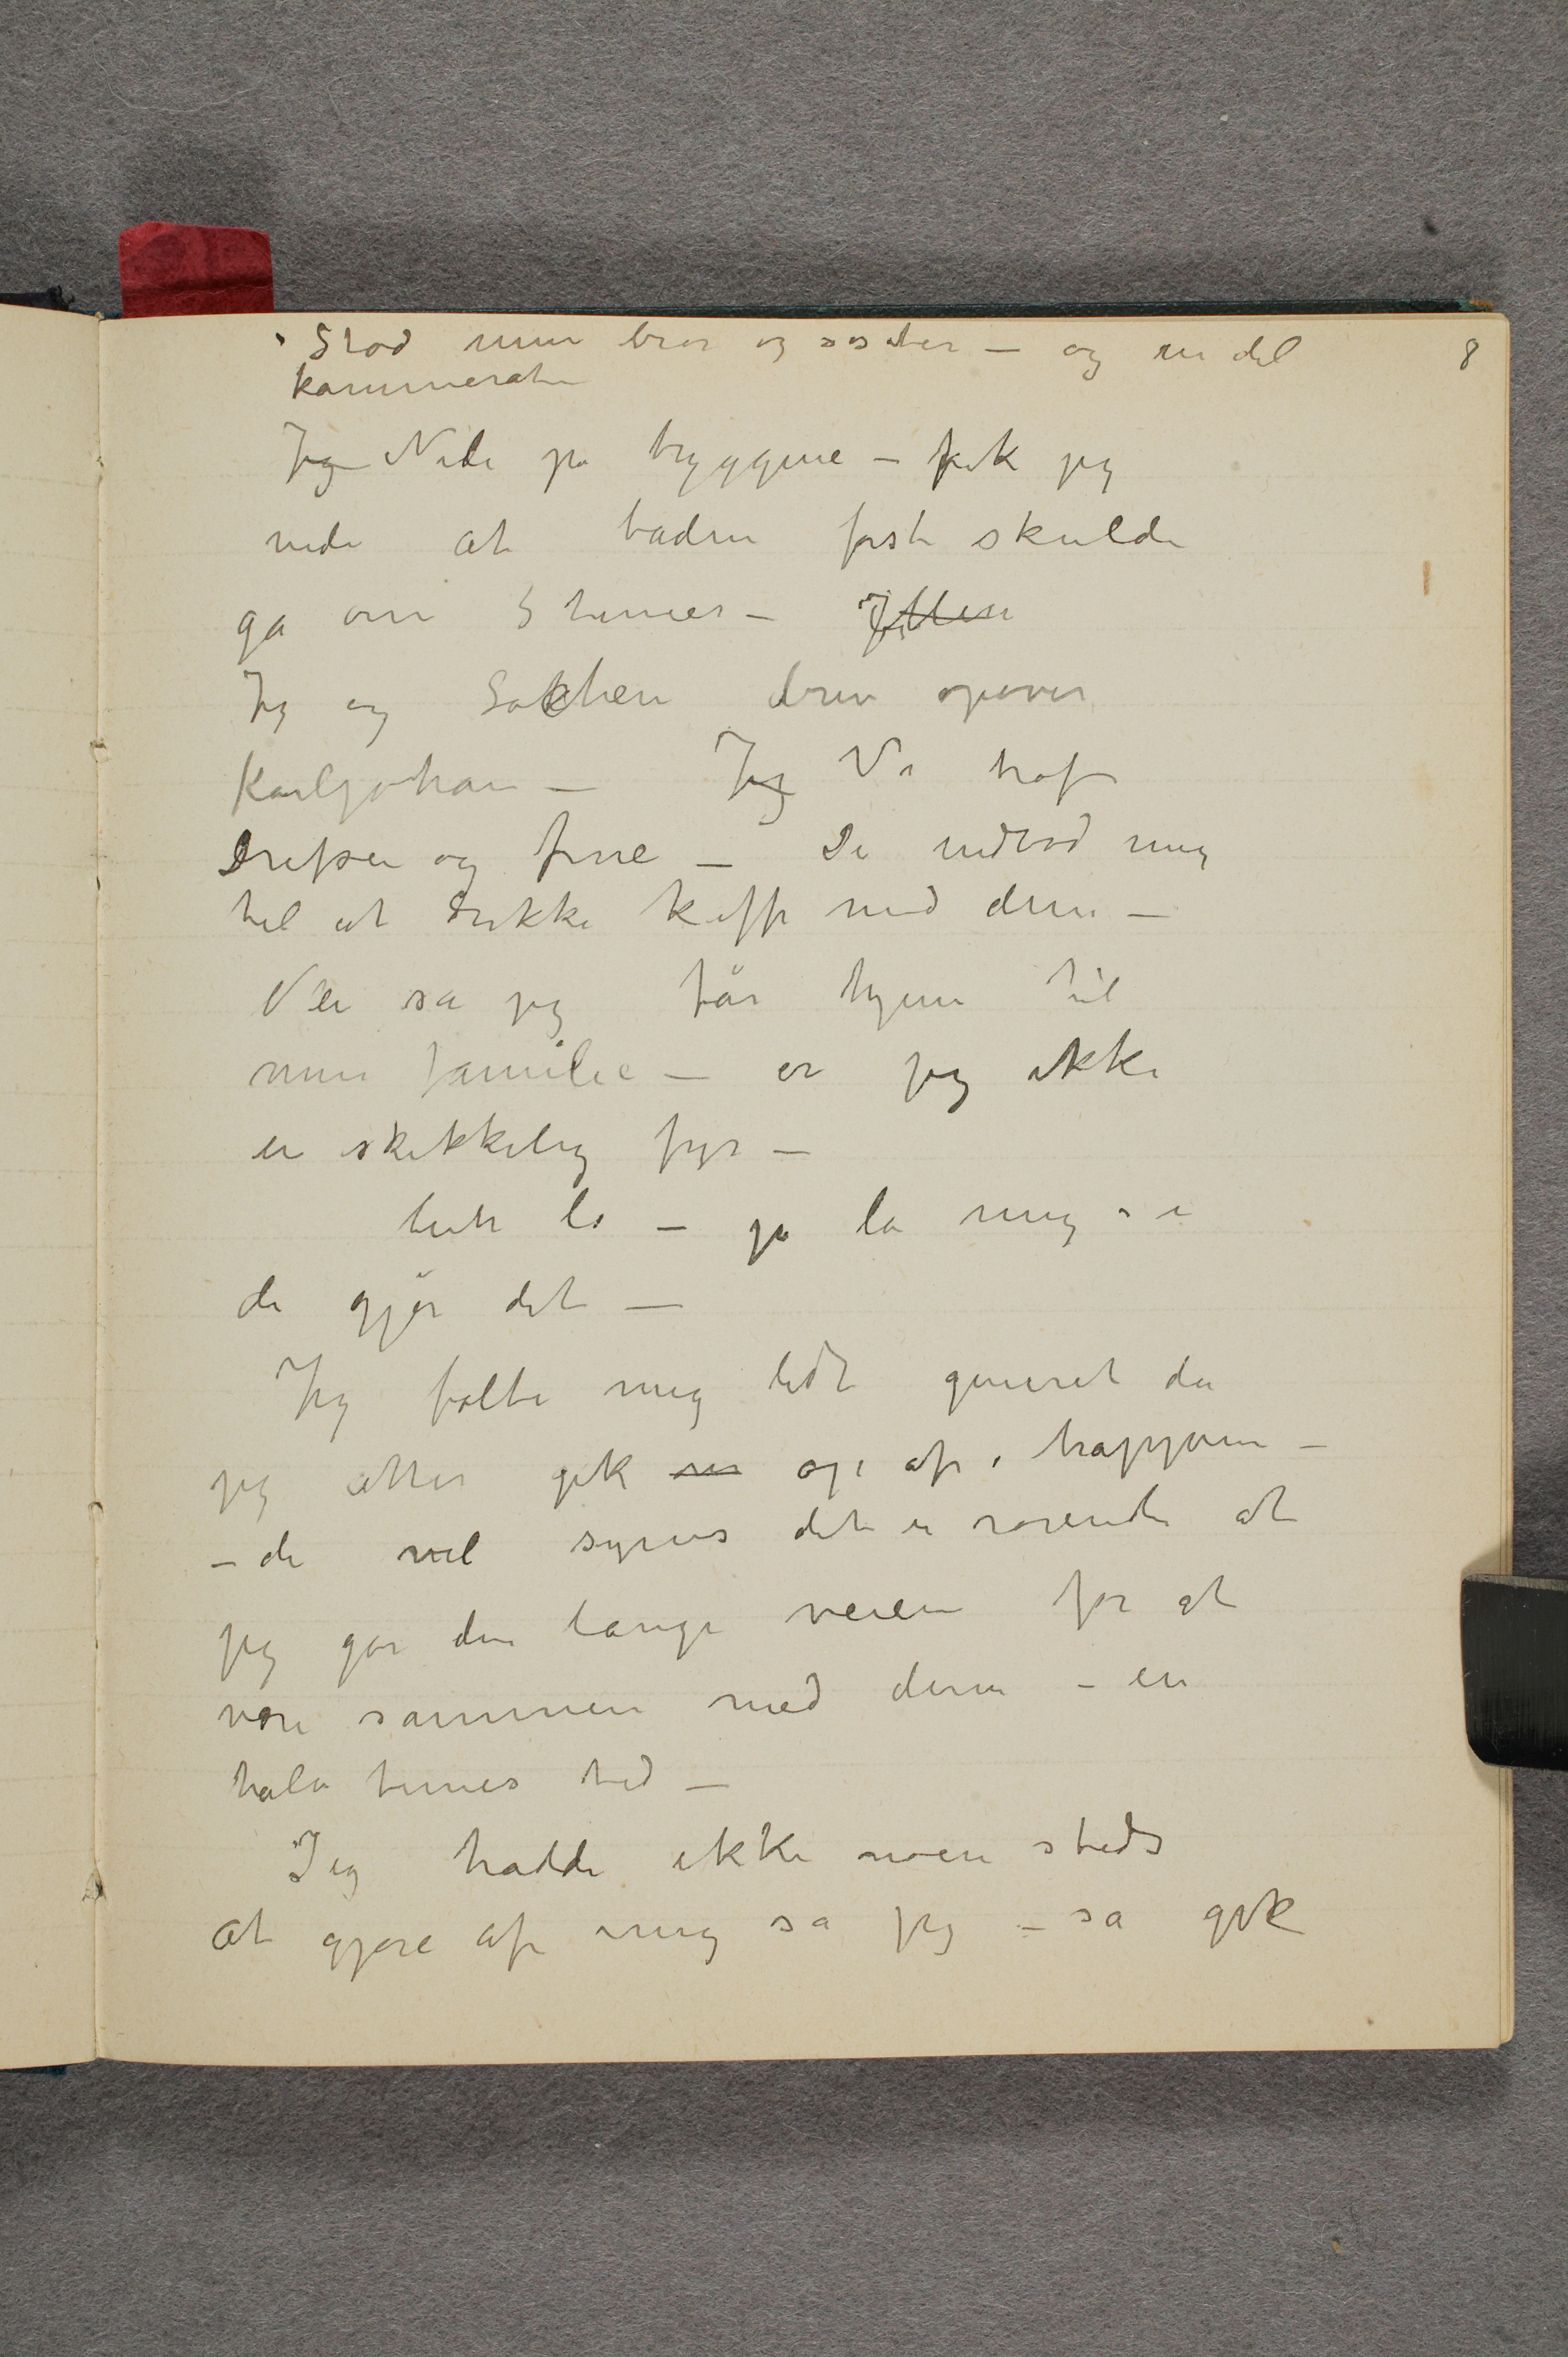 Stod min bror og søster – og en del
8
kammerater
Jeg Nede på bryggene – fik jeg
vide at båden først skulde
gå om 3 timer –
Jeg og drev opover
Karljohan – Jeg Vi traf
Drefsen og frue – De indbød mig
til at drikke kaffe med dem –
Nei sa jeg får hjem til
min familie – er jeg ikke
en skikkelig fyr –
lo – ja la mig se
de gjør det –
Jeg følte mig lidt generet da
jeg atter gik op af trapperne –
– de vil synes det er rørende at
jeg går den lange veien for at
være sammen med dem – en
halv times tid –
Jeg hadde ikke noen steds
at gjøre af mig sa jeg – så gik